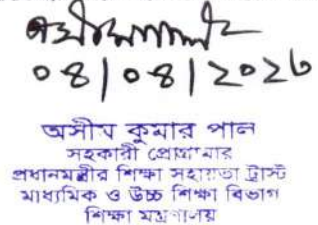 ০৪|০৪|২০২৩
অসীম কুমার পাল
সহকারী প্রোগ্রামার
প্রধানমন্ত্রীর শিক্ষা সহায়তা ট্রাস্ট
মাধ্যমিক ও উচ্চ শিক্ষা বিভাগ
শিক্ষা মন্ত্রণালয়